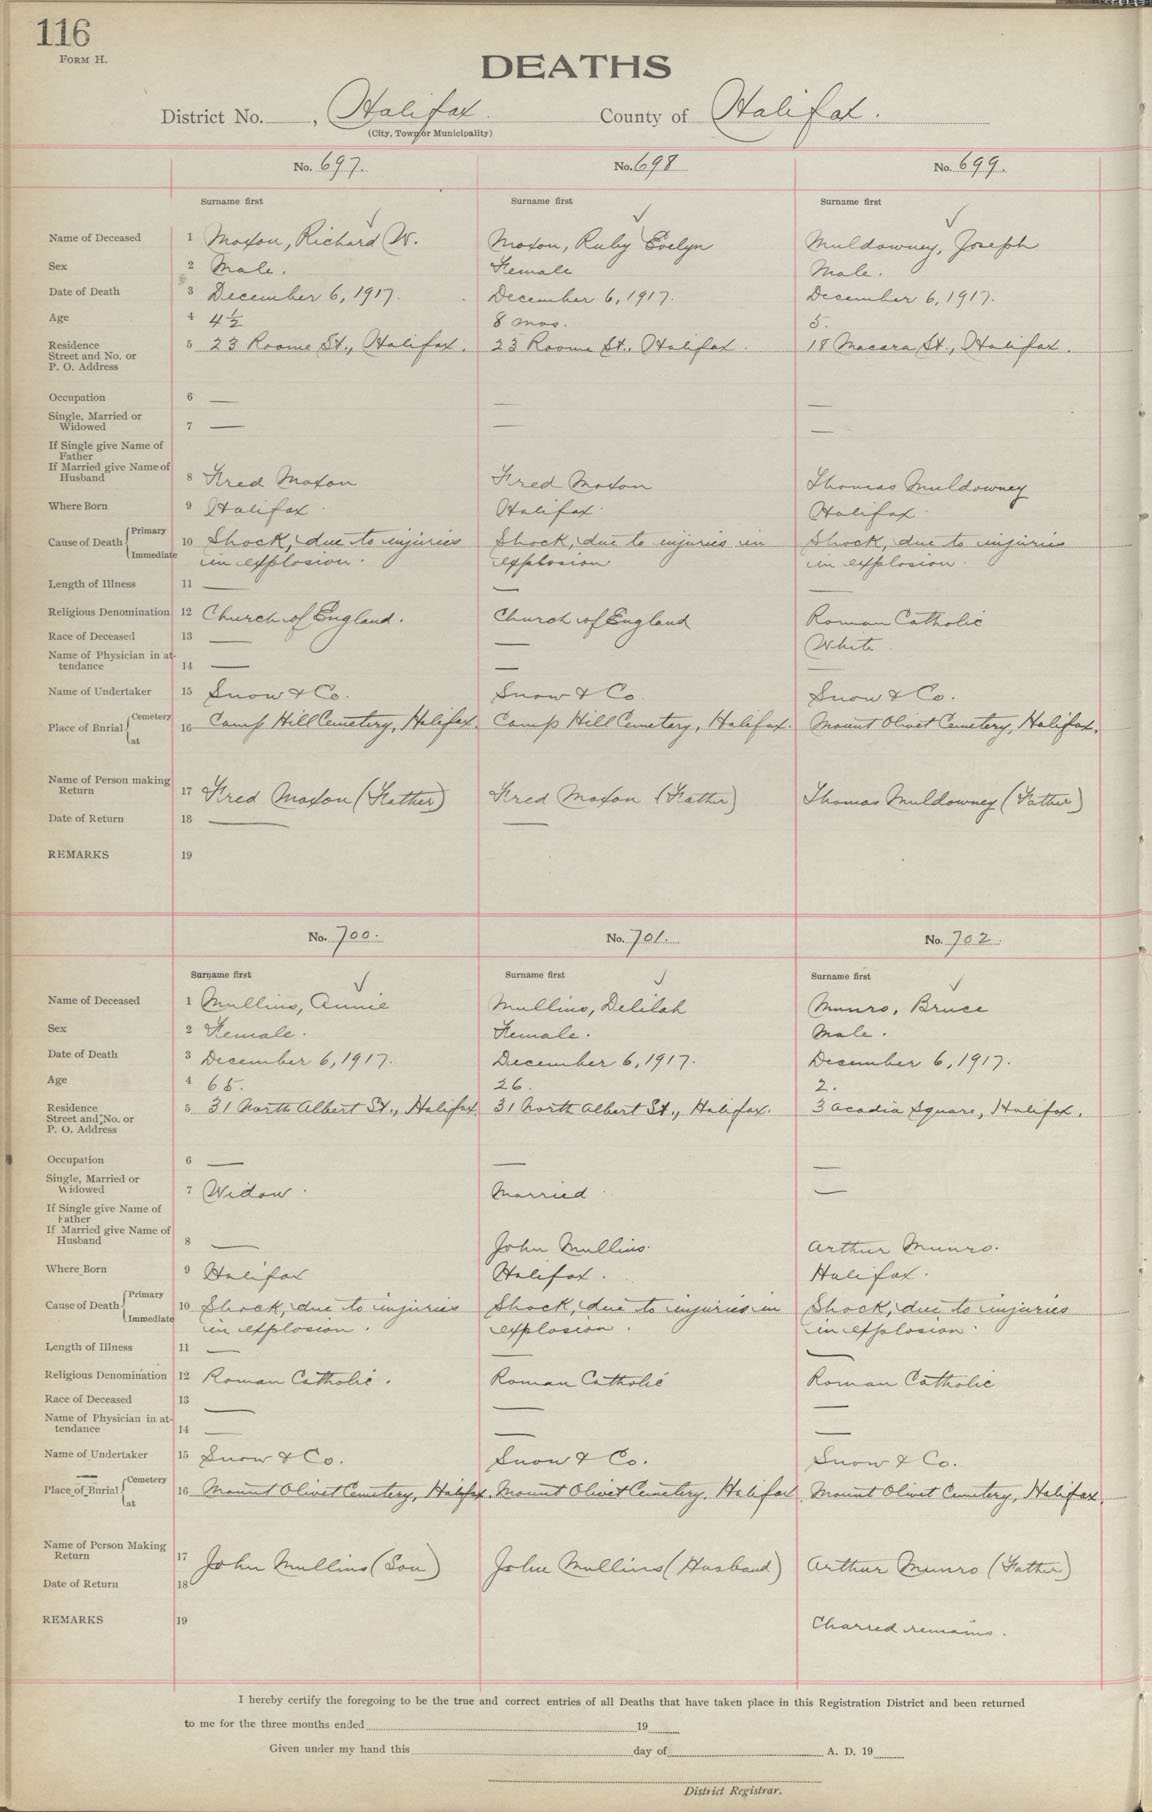 116
FORM H.
DEATHS
District No. , Halifax. County of Halifax.
(City, Town or Municipality)
No. 697. No. 698 No. 699.
Surname first Surname first Surname first
Name of Deceased 1 Moxon, Richard W. Moxon, Ruby Evelyn Muldowney, Joseph
Sex 2 Male. Female Male.
Date of Death 3 December 6, 1917. December 6, 1917. December 6, 1917.
Age 4 4½ 8 mos. 5.
Residence 5 23 Roome St., Halifax. 23 Roome St., Halifax. 18 Macara St., Halifax.
Street and No. or
P. O. Address
Occupation 6 — — —
Single, Married or
Widowed 7 — — —
If Single give Name of
Father
If Married give Name of
Husband 8 Fred Moxon Fred Moxon Thomas Muldowney
Where Born 9 Halifax Halifax Halifax
Cause of Death { Primary Immediate 10 Shock, due to injuries Shock, due to injuries in Shock, due to injuries
in explosion. explosion in explosion.
Length of Illness 11 — — —
Religious Denomination 12 Church of England. Church of England Roman Catholic
Race of Deceased 13 — — White.
Name of Physician in at-
tendance 14 — — —
Name of Undertaker 15 Snow & Co. Snow & Co. Snow & Co.
Place of Burial { Cemetery at 16 Camp Hill Cemetery, Halifax. Camp Hill Cemetery, Halifax. Mount Olivet Cemetery, Halifax.
Name of Person making
Return 17 Fred Moxon (Father) Fred Moxon (Father) Thomas Muldowney (Father)
Date of Return 18 — —
REMARKS 19
No. 700. No. 701. No. 702.
Surname first Surname first Surname first
Name of Deceased 1 Mullins, Annie Mullins, Delilah Munro, Bruce
Sex 2 Female. Female. Male.
Date of Death 3 December 6, 1917. December 6, 1917. December 6, 1917.
Age 4 65. 26. 2.
Residence 5 31 North Albert St., Halifax 31 North Albert St., Halifax. 3 Acadia Square, Halifax.
Street and No. or
P. O. Address
Occupation 6 — — —
Single, Married or
Widowed 7 Widow. Married —
If Single give Name of
Father
If Married give Name of
Husband 8 — John Mullins. Arthur Munro.
Where Born 9 Halifax Halifax. Halifax.
Cause of Death { Primary Immediate 10 Shock, due to injuries Shock, due to injuries in Shock, due to injuries
in explosion. explosion. in explosion.
Length of Illness 11 — — —
Religious Denomination 12 Roman Catholic. Roman Catholic Roman Catholic
Race of Deceased 13 — — —
Name of Physician in at-
tendance 14 — — —
Name of Undertaker 15 Snow & Co. Snow & Co. Snow & Co.
Place of Burial { Cemetery at 16 Mount Olivet Cemetery, Halifax. Mount Olivet Cemetery, Halifax Mount Olivet Cemetery, Halifax.
Name of Person Making
Return 17 John Mullins (Son) John Mullins (Husband) Arthur Munro (Father)
Date of Return 18
REMARKS 19 Charred remains.
I hereby certify the foregoing to be the true and correct entries of all Deaths that have taken place in this Registration District and been returned
to me for the three months ended 19
Given under my hand this day of A. D. 19
District Registrar.